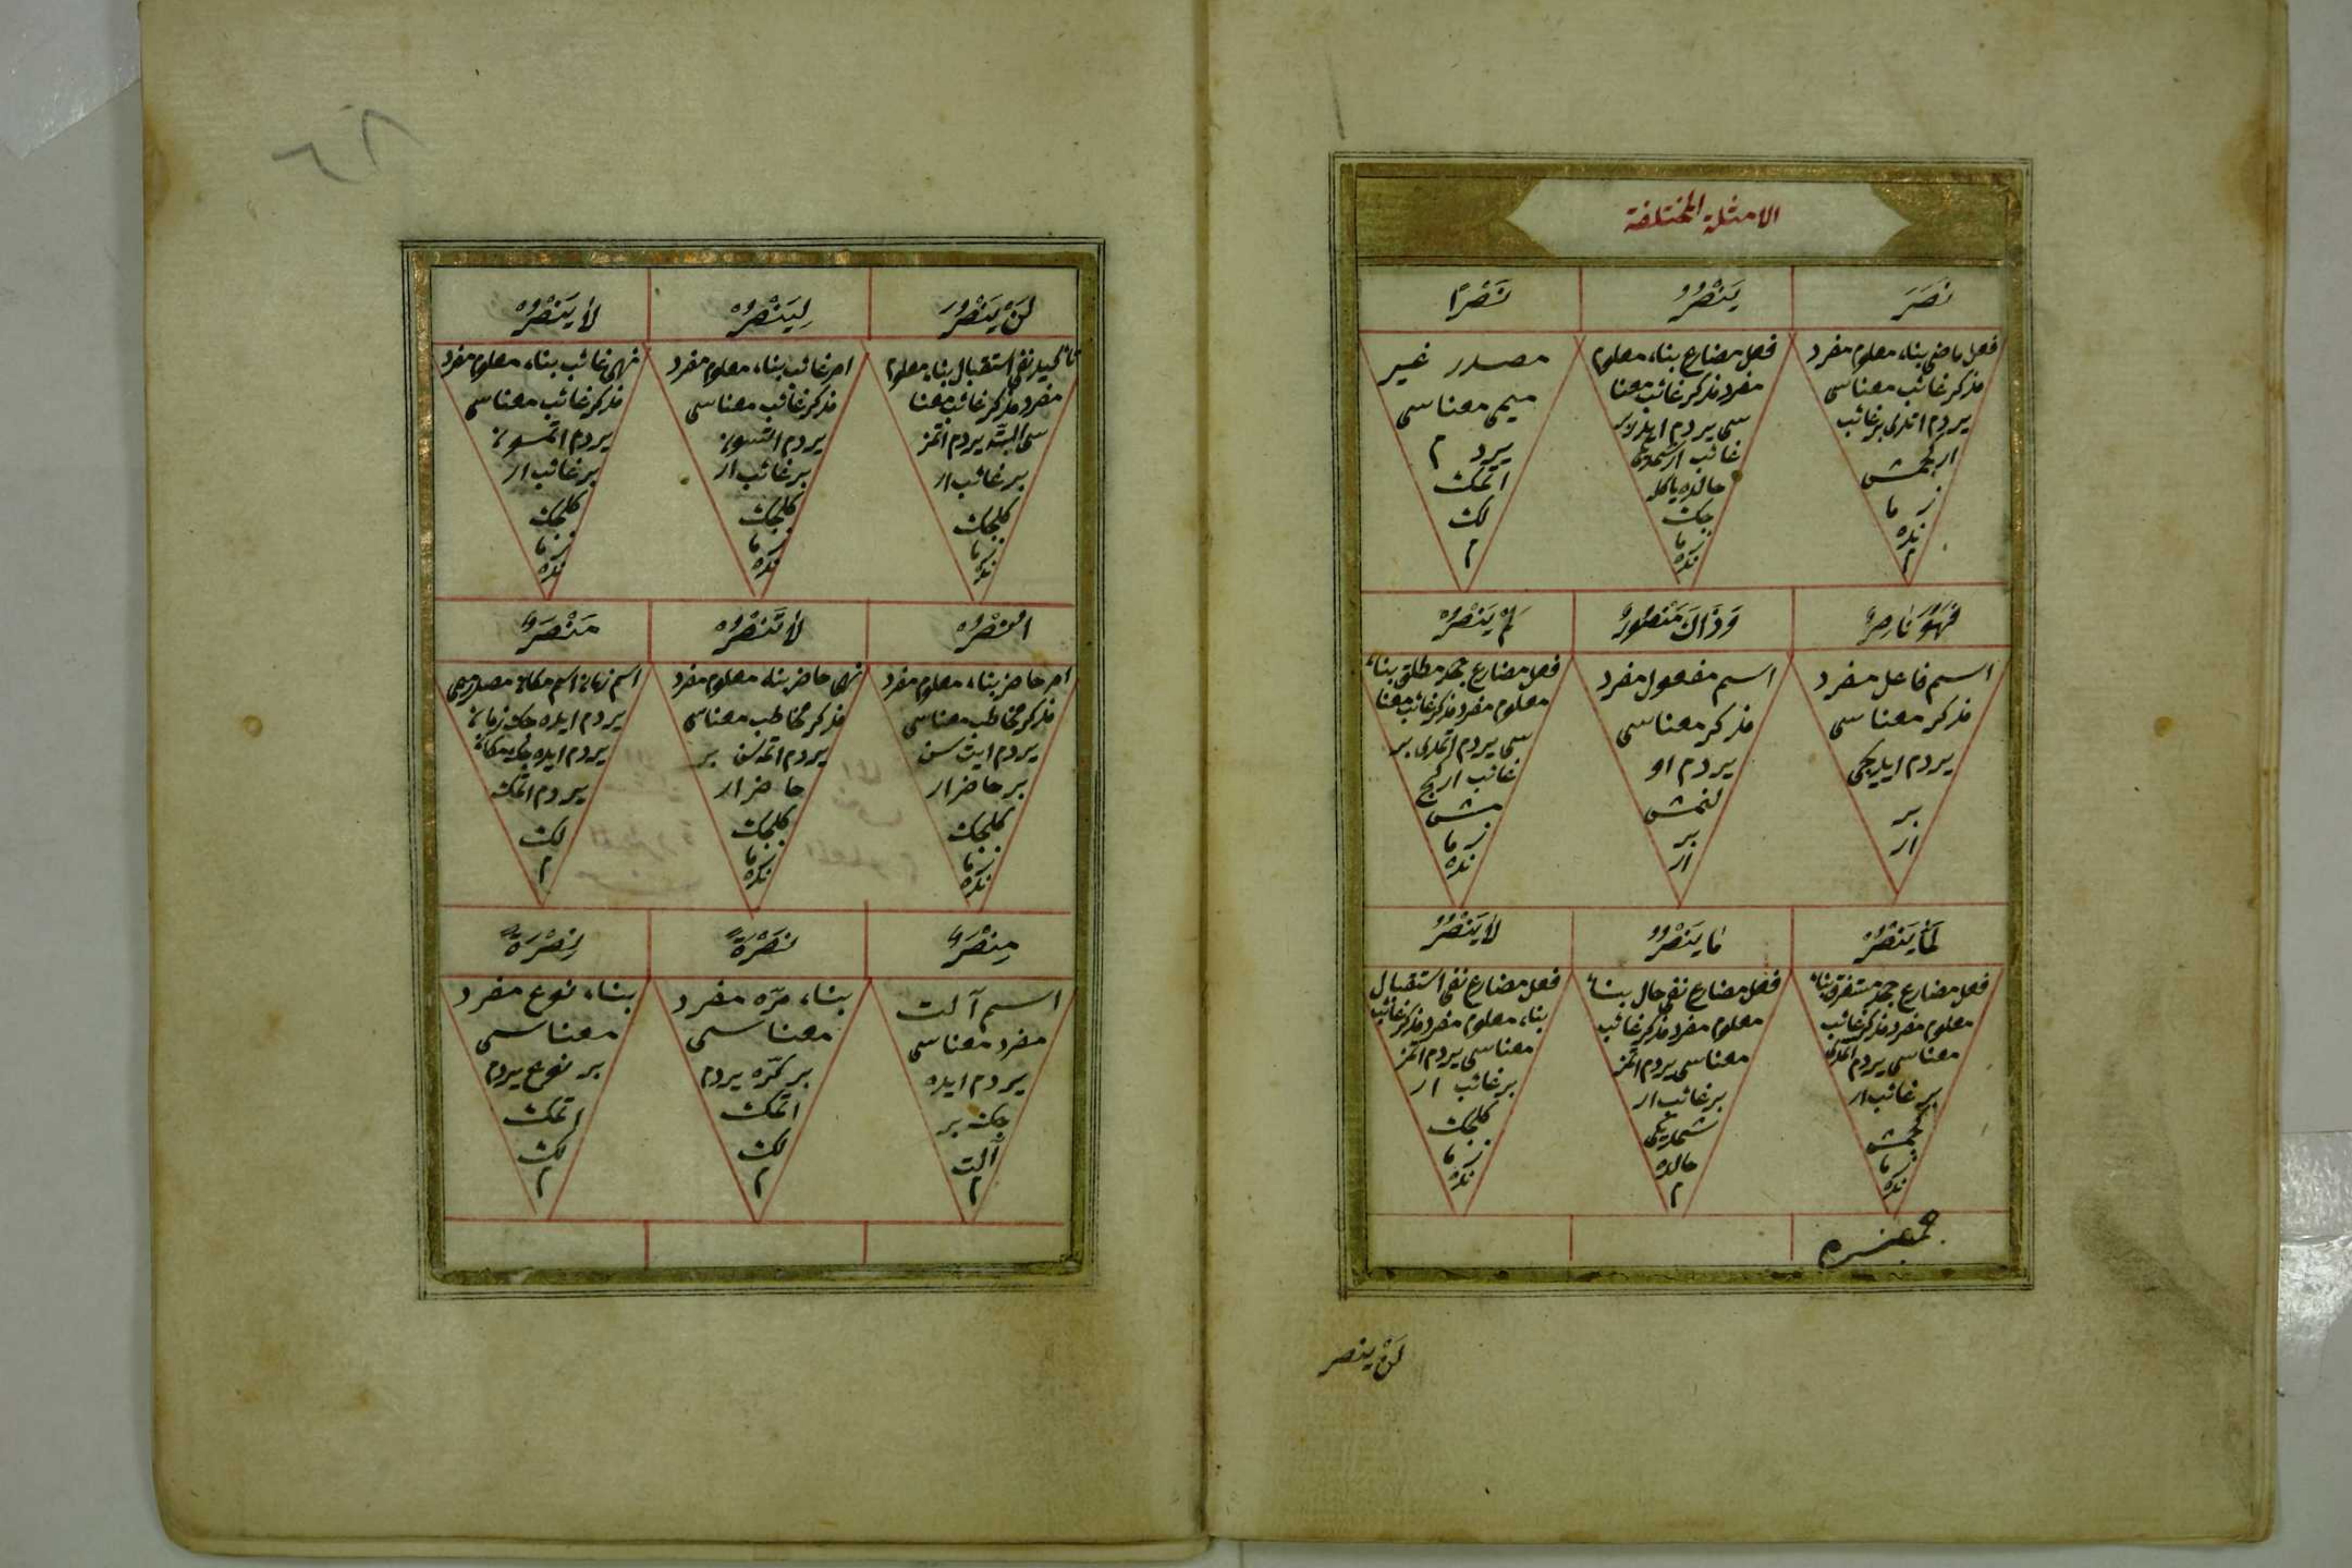 الامثلة المختلفة
نَصَرَ
فعل ماضی بناء معلوم مفرد
مذکر غائب معناسی
یردم اتدی بر غائب
ار کچمش
ز ما
نده
م
يَنْصُرُ
فعل مضارع بناء معلوم
مفرد مذکر غائب معنا
سی یردم ایدر بر
غائب ار شمدیکی
حالده یا کله
جک
ز ما
نده
نَصْرًا
مصدر غیر
میمی معناسی
یرد م
اتمک
لک
م
فَهُوَ نَاصِرٌ
اسم فاعل مفرد
مذکر معناسی
یردم ایدیجی
بر
ار
وَذَاكَ مَنْصُورٌ
اسم مفعول مفرد
مذکر معناسی
یردم او
لنمش
بر
ار
لَمْ يَنْصُرْ
فعل مضارع جحد مطلق بناء
معلوم مفرد مذکر غائب معنا
سی یردم اتمدی بر
غائب ار کچ
مش
ز ما
نده
لَمَّا يَنْصُرْ
فعل مضارع جحد مستغرق بناء
معلوم مفرد مذکر غائب
معناسی یردم اتمدی
بر غائب ار
کچمش
ز ما
نده
مَا يَنْصُرُ
فعل مضارع نفی حال بناء
معلوم مفرد مذکر غائب
معناسی یردم اتمز
بر غائب ار
شمدیکی
حالده
م
لَا يَنْصُرُ
فعل مضارع نفی استقبال
بناء معلوم مفرد مذکر غائب
معناسی یردم اتمز
بر غائب ار
کلجک
ز ما
نده
لن ينصر
لَنْ يَنْصُرَ
تأکید نفی استقبال بناء معلوم
مفرد مذکر غائب معنا
سی البته یردم اتمز
بر غائب ار
کلجک
ز ما
نده
لِيَنْصُرْ
امر غائب بناء معلوم مفرد
مذکر غائب معناسی
یردم اتسون
بر غائب ار
کلجک
ز ما
نده
لَا يَنْصُرْ
نهی غائب بناء معلوم مفرد
مذکر غائب معناسی
یردم اتمسون
بر غائب ار
کلجک
ز ما
نده
اُنْصُرْ
امر حاضر بناء معلوم مفرد
مذکر مخاطب معناسی
یردم ایت سن
بر حاضر ار
کلجک
ز ما
نده
لَا تَنْصُرْ
نهی حاضر بناء معلوم مفرد
مذکر مخاطب معناسی
یردم اتمه سن بر
حاضر ار
کلجک
ز ما
نده
مَنْصَرٌ
اسم زمان اسم مکان مصدر میمی
یردم ایده جک زمان
یردم ایده جک مکان
یردم اتمک
لک
م
مِنْصَرٌ
اسم آلت
مفرد معناسی
یردم ایده
جک بر
آلت
م
نَصْرَةً
بناء مرّه مفرد
معناسی
بر کرّه یردم
اتمک
لک
م
نِصْرَةً
بناء نوع مفرد
معناسی
بر نوع یردم
اتمک
لک
م